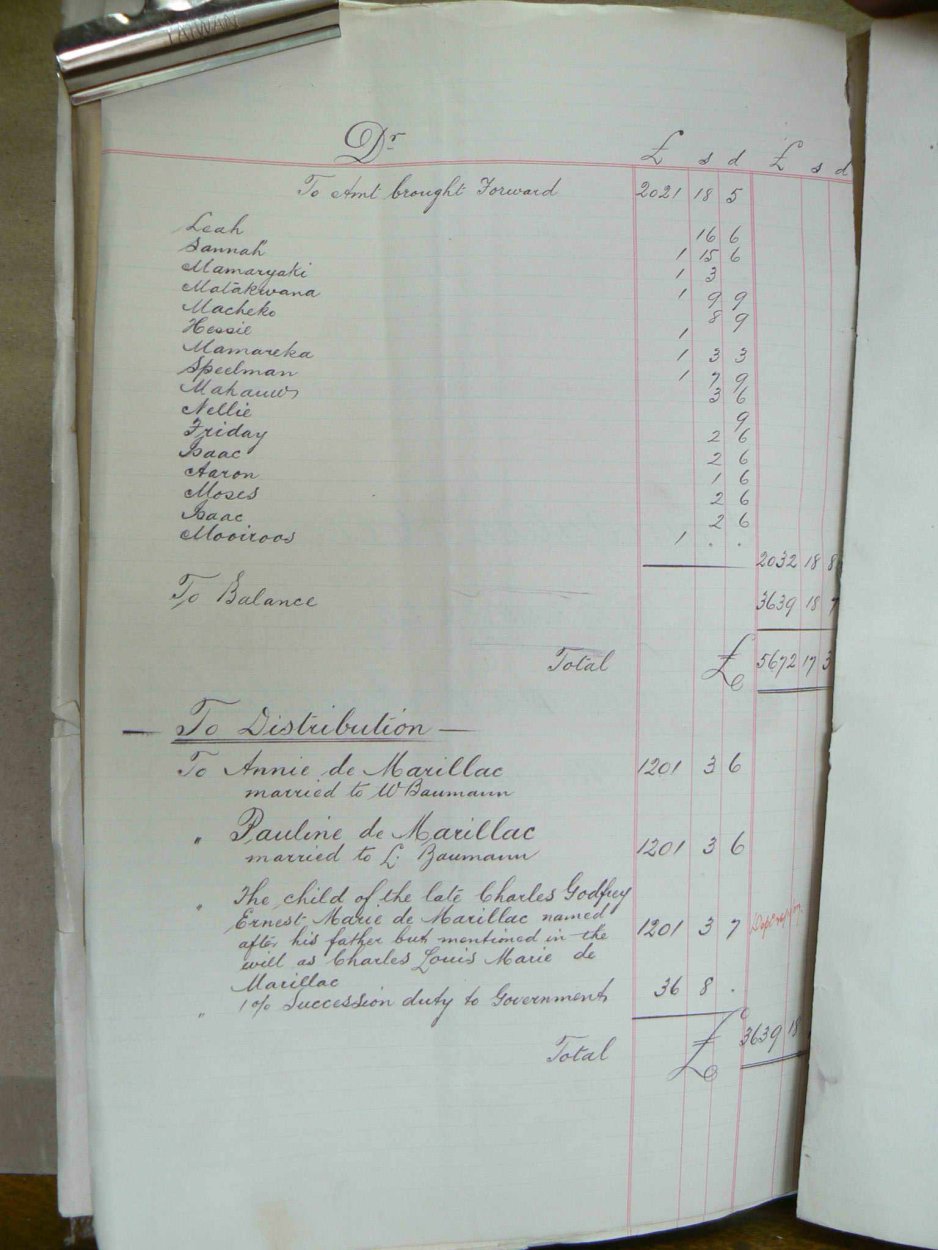 TAIWAN
Dr £ s d £ s d
To Amt brought Forward 2021 18 5
Leah 16 6
Sannah 1 15 6
Mamaryaki 1 3
Matakwana 1 9 9
Macheko 8 9
Hessie 1
Mamareka 1 3 3
Speelman 1 7 9
Mahauws 3 6
Nellie 9
Friday 2 6
Isaac 2 6
Aaron 1 6
Moses 2 6
Isaac 2 6
Mooiroos 1 . .
2032 18 8
To Balance 3639 18 7
Total £ 5672 17 3
To Distribution
To Annie de Marillac 1201 3 6
married to W Baumann
" Pauline de Marillac
married to L. Baumann 1201 3 6
" The child of the late Charles Godfrey
Ernest Marie de Marillac named 1201 3 7
after his father but mentioned in the
will as Charles Louis Marie de
Marillac
" 1% Succession duty to Government 36 8 .
Total £ 3639 18